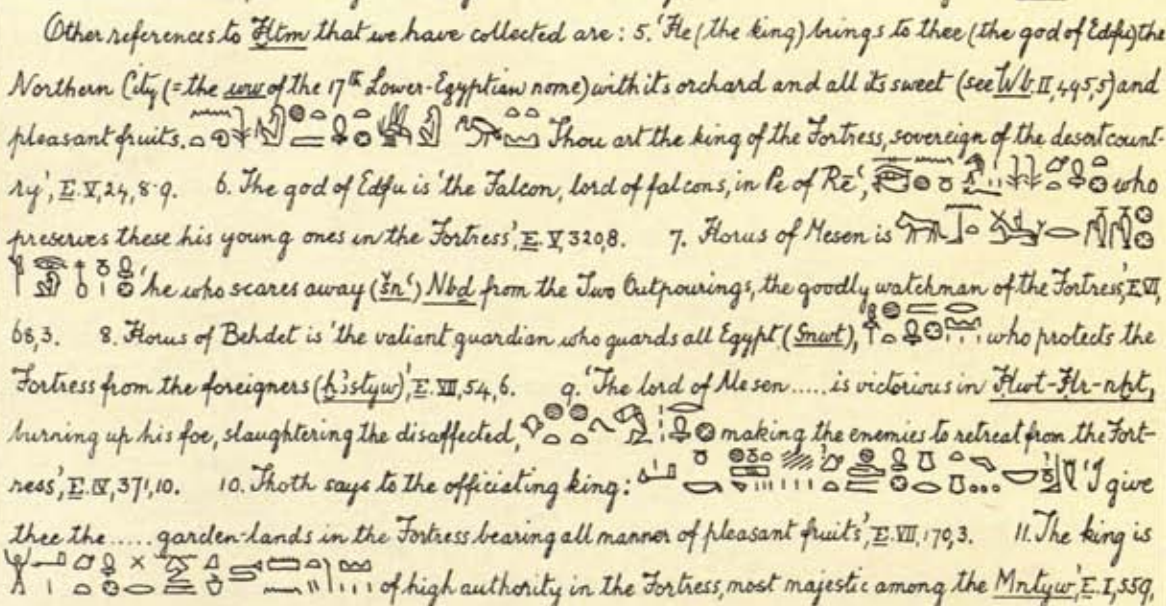 Other references to Ḫtm that we have collected are: 5. 'He (the king) brings to thee (the god of Edfu) the
Northern City (= the ww of the 17th Lower-Egyptian nome) with its orchard and all its sweet (see Wb. II, 495, 5) and
pleasant fruits. Thou art the king of the Fortress, sovereign of the desert count-
ry', E. V, 24, 8-9. 6. The god of Edfu is 'the Falcon, lord of falcons, in Pe of Rē', who
preserves these his young ones in the Fortress', E. V, 320, 8. 7. Horus of Mesen is
'he who scares away (šnʿ) Nbd from the Two Outpourings, the goodly watchman of the Fortress', E. VI,
68, 3. 8. Horus of Behdet is 'the valiant guardian who guards all Egypt (Snwt), who protects the
Fortress from the foreigners (ḫꜣstyw)', E. VII, 54, 6. 9. 'The lord of Mesen ..... is victorious in Ḥwt-Ḥr-nḫt,
burning up his foe, slaughtering the disaffected, making the enemies to retreat from the Fort-
ress', E. IV, 371, 10. 10. Thoth says to the officiating king: 'I give
thee the ..... garden-lands in the Fortress bearing all manner of pleasant fruits', E. VII, 170, 3. 11. The king is
of high authority in the Fortress, most majestic among the Mntyw', E. I, 559,